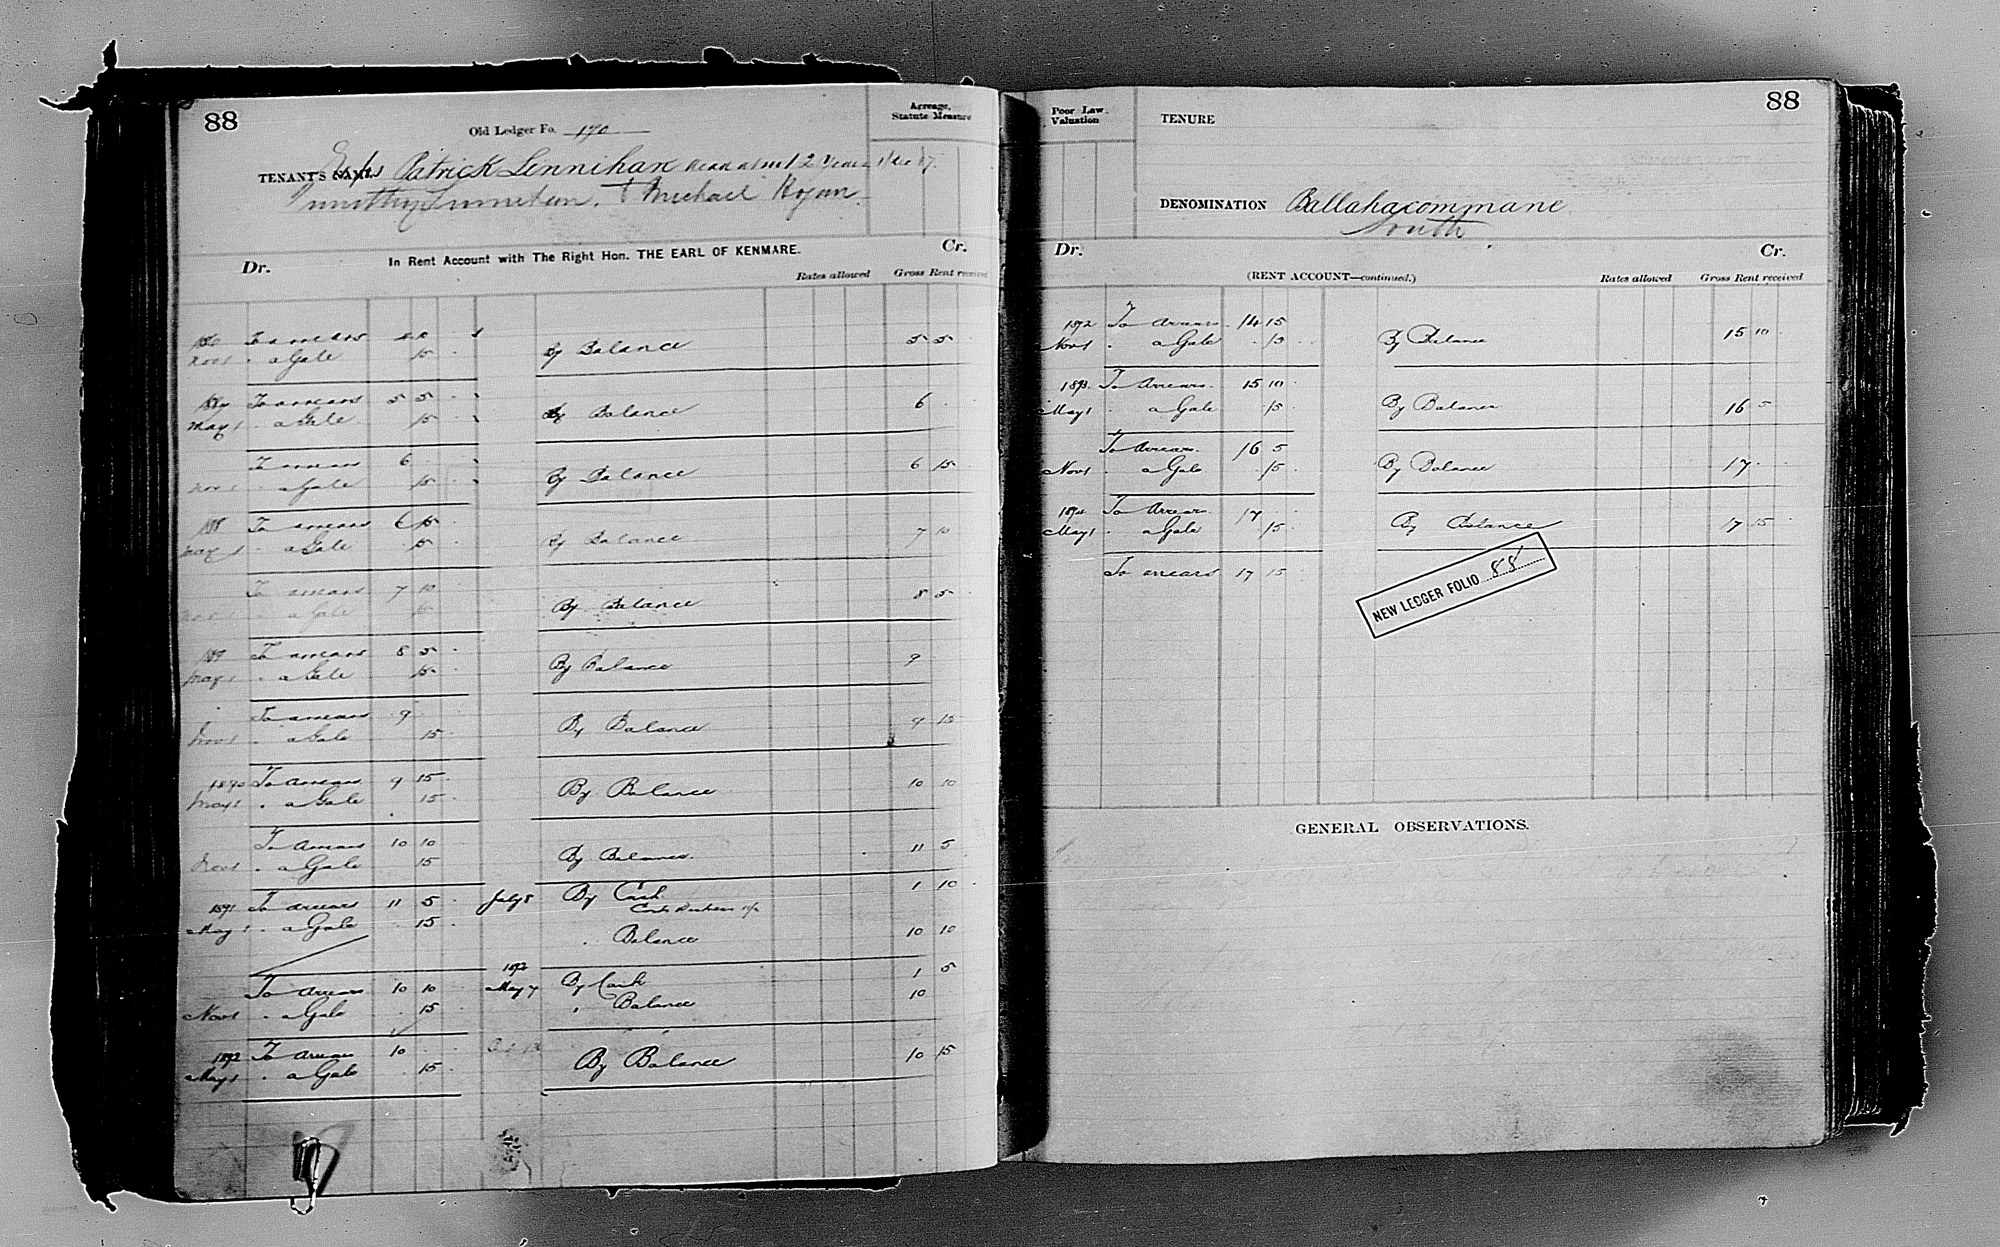 88
Old Ledger Fo. 170
Acreage, Statute Measure
TENANT'S NAME Reps Patrick Lennihan dead about 2 Years
Timothy & Michael Hogan.
In Rent Account with The Right Hon. THE EARL OF KENMARE.
Dr. Cr.
Rates allowed Gross Rent received
To arrears
Nov 1 . a Gale 15 . By Balance 5 5
To arrears 5 5 .
May 1 . a Gale 15 By Balance 6 .
To arrears 6 .
Nov 1 . a Gale 15 By Balance 6 15
To arrears 6 15
May 1 . a Gale 15 By Balance 7 10
To arrears 7 10
Nov 1 . a Gale 15 By Balance 8 5
To arrears 8 5 .
May 1 . a Gale 15 By Balance 9
To arrears 9
Nov 1 . a Gale 15 By Balance 9 15
1890 To Arrears 9 15
May 1 . a Gale 15 . By Balance 10 10
To Arrears 10 10
Nov 1 . a Gale 15 By Balance. 11 5
1891 To Arrears 11 5 . July 8 By Cash 1 10
May 1 . a Gale . 15 .
. Balance 10 10
1892
To Arrears 10 10 May 7 By Cash 1 5
Nov 1 . a Gale . 15 . Balance 10
1892 To Arrears 10 . .
May 1 . a Gale . 15 . By Balance 10 15
88
Poor Law Valuation
TENURE
DENOMINATION Ballahacommane
South
Dr. Cr.
(RENT ACCOUNT—continued.)
Rates allowed Gross Rent received
1892 To Arrears . 14 15
Nov 1 . a Gale . 15 . By Balance 15 10
1893. To Arrears. 15 10
May 1 a Gale . 15 By Balance 16 5
To Arrears. 16 5
Nov 1 . a Gale . 15 . By Balance 17 .
1894 To Arrears. 17
May 1 . a Gale . 15 By Balance 17 15
To arrears 17 15
NEW LEDGER FOLIO 88
GENERAL OBSERVATIONS.